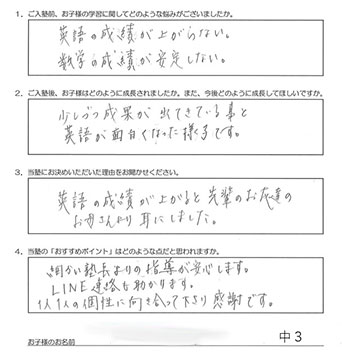 1．ご入塾前、お子様の学習に関してどのような悩みがございましたか。
英語の成績が上がらない。
数学の成績が安定しない。
2．ご入塾後、お子様はどのように成長されましたか。また、今後どのように成長してほしいですか。
少しづつ成果が出てきている事と
英語が面白くなった様子です。
3．当塾にお決めいただいた理由をお聞かせください。
英語の成績が上がると先輩のお友達の
お母さんより耳にしました。
4．当塾の「おすすめポイント」はどのような点だと思われますか。
細かい塾長よりの指導が安心します。
LINE連絡も助かります。
1人1人の個性に向き合って下さり感謝です。
お子様のお名前
中3